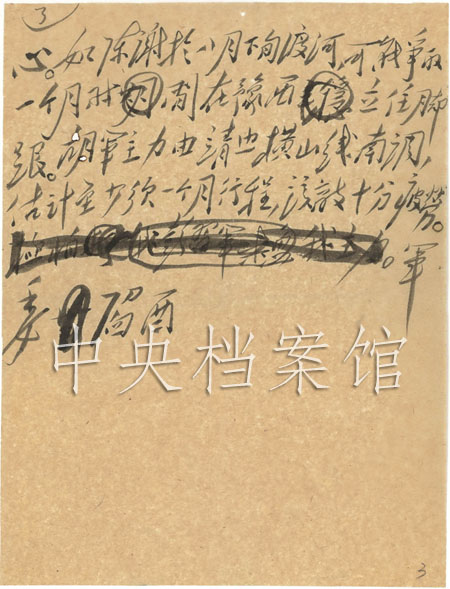 ③
心。如陈谢于八月下旬渡河,可战争取
一个月时间在豫西立住脚
跟。胡军主力由清边横山线南调,
估计至少须一个月行程,该敌十分疲劳。
军
委 酉
中央档案馆
3